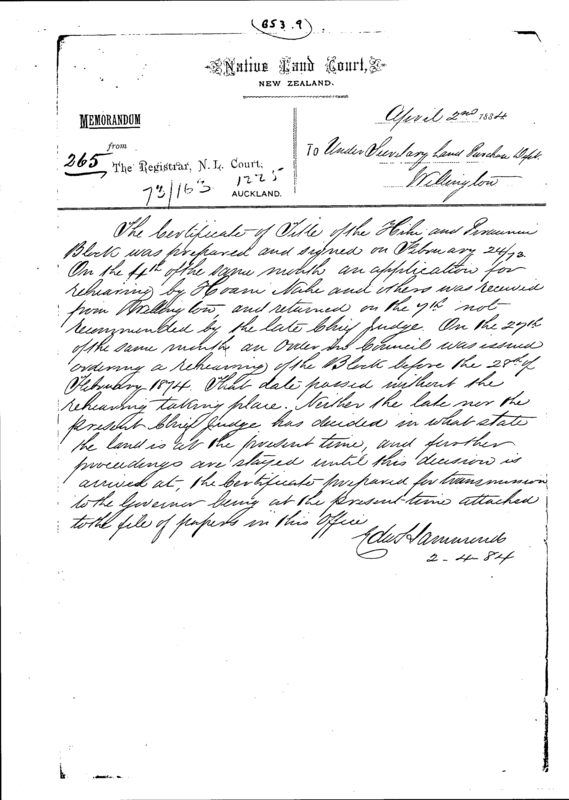 853.9
Native Land Court,
NEW ZEALAND.
MEMORANDUM
April 2nd 1884
from
265
The Registrar, N. L. Court,
To Under Secretary Land Purchase Dept.
73/163
1225
AUCKLAND.
Wellington
The Certificate of Title of the Hihi and
Block was prepared and signed on February 24/73
On the 4th of the same month an application for
rehearing by Hoani Nahe and others was received
from Wellington, and returned on the 7th not
recommended by the late Chief Judge. On the 27th
of the same month an Order in Council was issued
ordering a rehearing of the Block before the 28th of
February 1874. That date passed without the
rehearing taking place. Neither the late nor the
present Chief Judge has decided in what state
the land is at the present time, and further
proceedings are stayed until this decision is
arrived at, the Certificate prepared for transmission
to the Governor being at the present time attached
to the file of papers in this Office
Edw Hammond
2-4-84